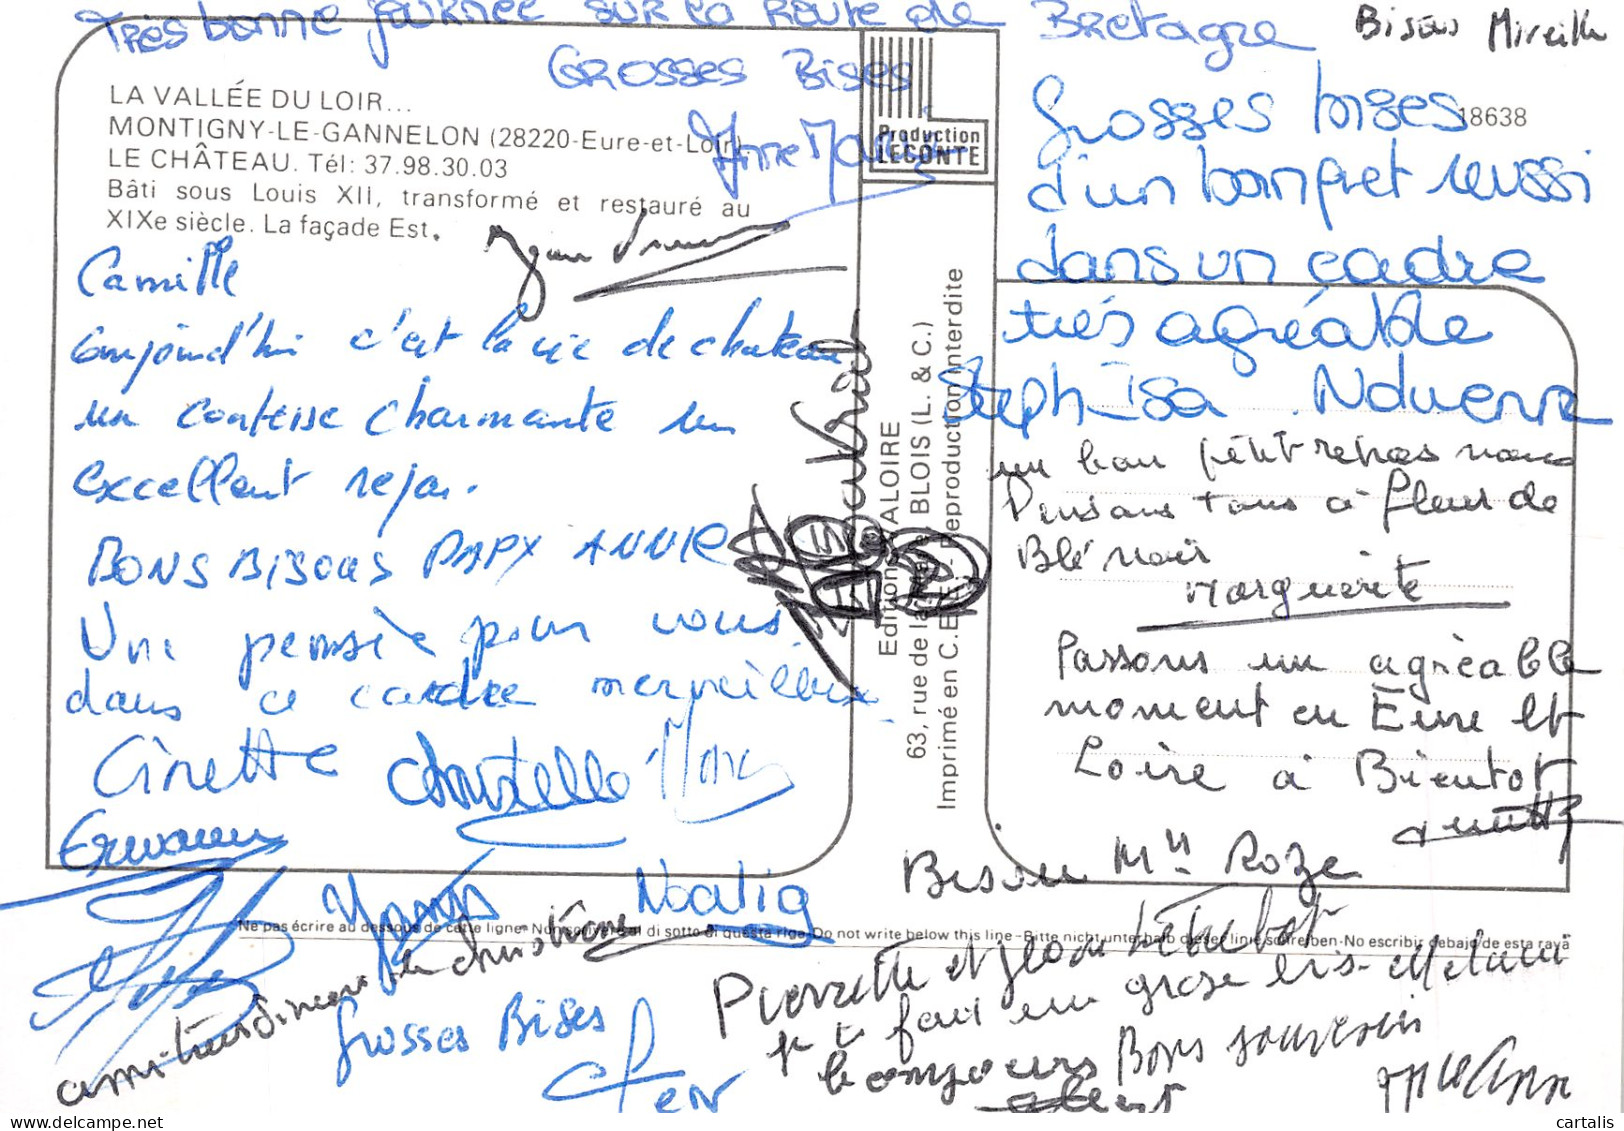 Très bonne journée sur la Route de Bretagne
Bisous Mireille
Grosses Bises
LA VALLÉE DU LOIR...
MONTIGNY-LE-GANNELON (28220-Eure-et-Loir)
LE CHÂTEAU. Tél: 37.98.30.03
Bâti sous Louis XII, transformé et restauré au
XIXe siècle. La façade Est.
Camille
aujourd'hui c'est la vie de chateau
un contesse charmante un
excellent repas.
BONS BISOUS PAPY ANNIE
Une pensée pour vous
dans ce cadre merveilleux
Ginette Christelle
Erwann
Yannis Noalig
amitiés sincères de christiane
Grosses Bises
Production
LECONTE
Editions VALOIRE
63, rue de la BLOIS (L. & C.)
Imprimé en C.E.E. - Reproduction Interdite
18638
Grosses bises
d'un banquet réussi
dans un cadre
très agréable
Steph Isa
un bon petit repas nous
Pensons tous à fleur de
Blé noir
Marguerite
Passons un agréable
moment en Eure et
Loire à Bientot
Bisou Mme Roze
Ne pas écrire au dessous de cette ligne - Non scrivere al di sotto di questa riga - Do not write below this line - Bitte nicht unterhalb dieser linie schreiben - No escribir debajo de esta raya
Pierrette et Jean
fait un grosse bis
Bons souvenir
cartalis